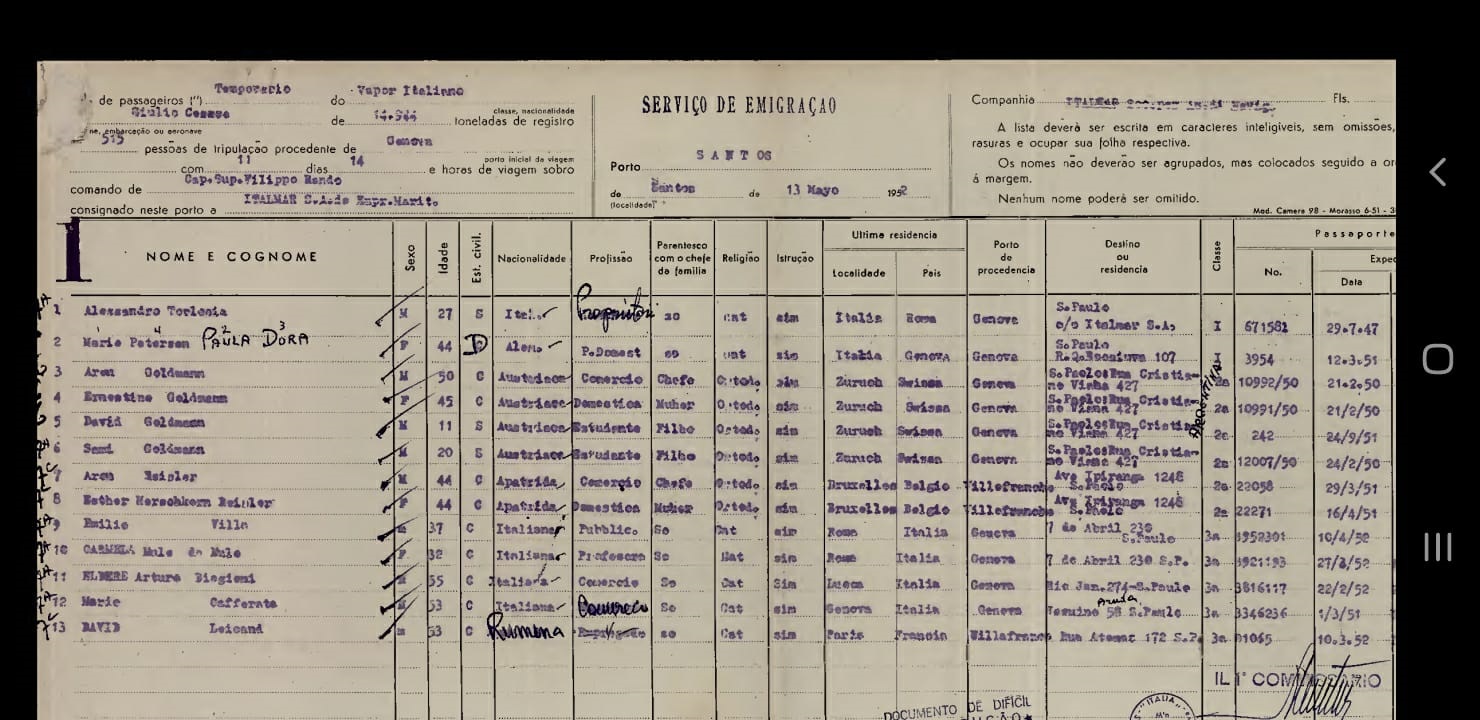 de passageiros (") Temporario do Vapor Italiano
Giulio Cesare de 14.944 toneladas de registro
classe, nacionalidade
ne, embarcação ou aeronave
515 pessoas de tripulação procedente de Genova
porto inicial da viagem
com 11 dias 14 e horas de viagem sobro
comando de Cap.Sup.Filippo Rando
consignado neste porto a ITALMAR S.A.de Empr.Marit.
SERVIÇO DE EMIGRAÇÃO
Porto SANTOS
de Santos de 13 Mayo 1952
(localidade)
Companhia ITALMAR Fls.
A lista deverá ser escrita em caracteres inteligiveis, sem omissões,
rasuras e ocupar sua folha respectiva.
Os nomes não deverão ser agrupados, mas colocados seguido a or
á margem.
Nenhum nome poderá ser omitido.
Mod. Camera 98 - Morasso 6-51 - 3
I
NOME E COGNOME Sexo Idade Est. civil. Nacionalidade Profissão Parentesco com o chefe da familia Religião Istrução Ultima residencia Localidade Pais Porto de procedencia Destino ou residencia Classe Passaporte No. Expe Data
1 Alessandro Torlonia M 27 S Ital. so Cat sim Italia Roma Genova S.Paulo c/o Italmar S.A. I 671581 29.7.47
2 Marie Petersen PAULA DORA F 44 D Alem. P.Domest so Cat sim Italia Genova Genova S.Paulo 107 I 3954 12.3.51
3 Aron Goldmann M 50 C Austriaco Comercio Chefe Ortodo sim Zuruch Swissa Genova S.Paolo:Rua Cristiano Viana 427 2a 10992/50 21.2.50
4 Ernestine Goldmann F 45 C Austriaca Domestica Muher Ortodo sim Zuruch Swissa Genova S.Paolo:Rua Cristiano Viana 427 2a 10991/50 21/2/50
5 David Goldmann M 11 S Austriaco Estudante Filho Ortodo sim Zuruch Swissa Genova S.Paolo:Rua Cristiano Viana 427 2a 242 24/9/51
6 Semi Goldmann M 20 S Austriaco Estudante Filho Ortodo sim Zuruch Swissa Genova S.Paolo:Rua Cristiano Viana 427 2a 12007/50 24/2/50
7 Aron Reisler M 44 C Apatrida Comercio Chefe Ortodo sim Bruxelles Belgio Villefranche Ave Ipiranga 1248 S.Paolo 2a 22058 29/3/51
8 Esther Herschkorn Reisler F 44 C Apatrida Domestica Muher Ortodo sim Bruxelles Belgio Villefranche Ave Ipiranga 1248 S.Paolo 2a 22271 16/4/51
9 Emilio Villa m 37 C Italiana Pubblic. So Cat sim Roma Italia Genova 7 de Abril 230 S.Paulo 3a 1952301 10/4/52
10 CARMELA Mule de Mule F 32 C Italiana Profesora So Cat sim Roma Italia Genova 7 de Abril 230 S.P. 3a 27/2/52
11 Arturo Biagioni 55 C Italiana Comercio So Cat Sim Lucca Italia Genova Rio Jan.274-S.Paulo 3a 3816117 22/2/52
12 Marie Cafferata 53 C Italiana Comercio So Cat sim Genova Italia Genova 58 S.Paulo 3a 3346236 1/3/51
13 DAVID Leicand m 53 C Rumena so Cat sim Paris Francia Villafranca Rua 172 S.P. 3a 01065 10.3.52
IL 1° COMMISSARIO
DOCUMENTO DE DIFÍCIL
ITALIA